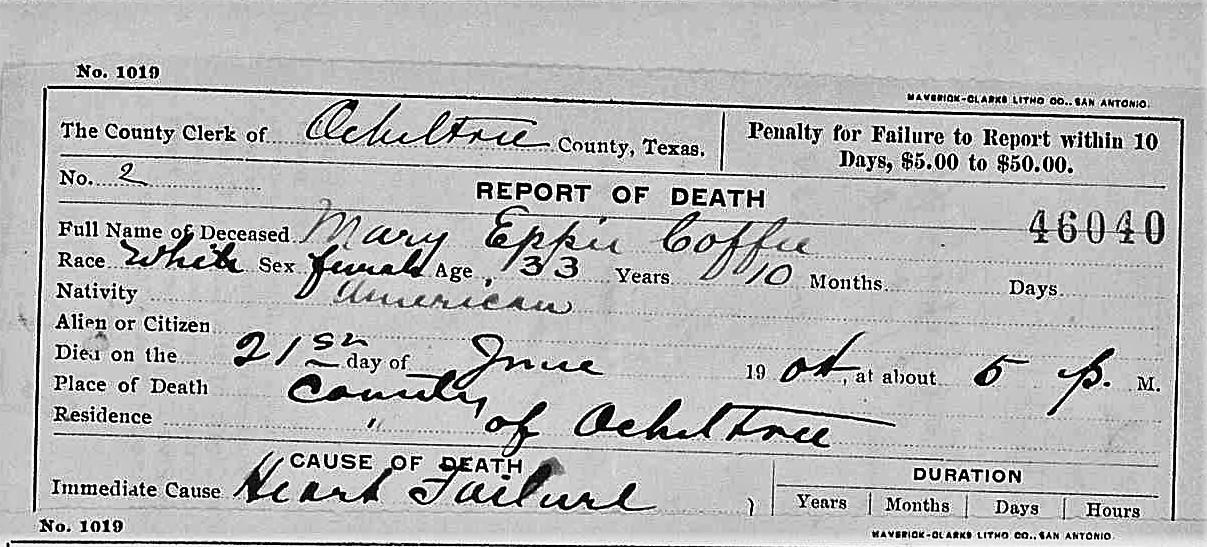 No. 1019
MAVERICK-CLARKE LITHO CO., SAN ANTONIO.
The County Clerk of Ochiltree County, Texas.
Penalty for Failure to Report within 10 Days, $5.00 to $50.00.
No. 2
REPORT OF DEATH
46040
Full Name of Deceased Mary Eppie Coffee
Race White Sex female Age 33 Years 10 Months Days
Nativity American
Alien or Citizen
Died on the 21st day of June 190, at about 5 p. M.
Place of Death County of Ochiltree
Residence "
CAUSE OF DEATH
DURATION
Immediate Cause Heart Failure } Years Months Days Hours
No. 1019
MAVERICK-CLARKE LITHO CO., SAN ANTONIO.